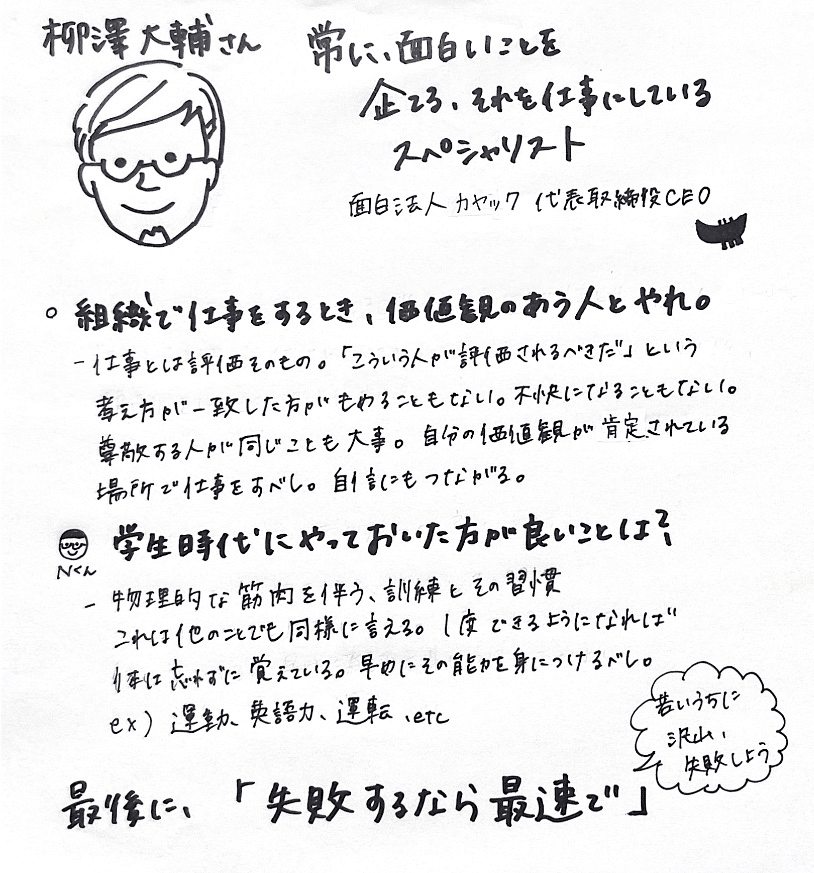 柳澤大輔さん
常に、面白いことを
企てる、それを仕事にしている
スペシャリスト
面白法人カヤック 代表取締役CEO
○ 組織で仕事をするとき、価値観のあう人とやれ。
- 仕事とは評価そのもの。「こういう人が評価されるべきだ」という
考え方が一致した方がもめることもない。不快になることもない。
尊敬する人が同じことも大事。自分の価値観が肯定されている
場所で仕事をすべし。自信にもつながる。
Nくん
学生時代にやっておいた方が良いことは?
- 物理的な筋肉を伴う、訓練とその習慣
これは他のことでも同様に言える。1度できるようになれば
体は忘れずに覚えている。早めにその能力を身につけるべし。
ex) 運動、英語力、運転、etc
若いうちに
沢山、
失敗しよう
最後に、「失敗するなら最速で」